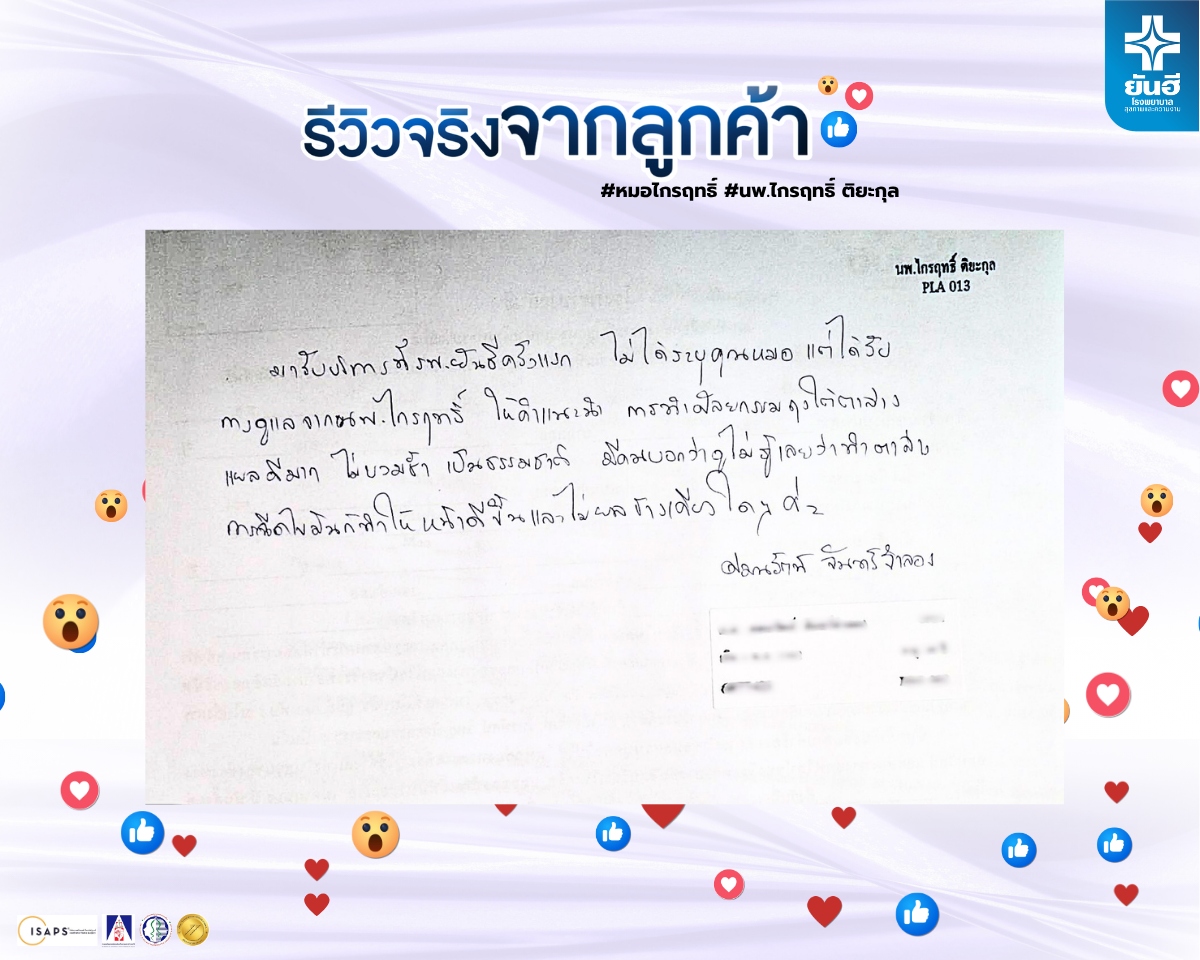 ยันฮี
โรงพยาบาล
สุขภาพและความงาม
รีวิวจริงจากลูกค้า
#หมอไกรฤทธิ์ #นพ.ไกรฤทธิ์ ติยะกุล
นพ.ไกรฤทธิ์ ติยะกุล
PLA 013
มารับบริการที่ รพ.ยันฮีครั้งแรก ไม่ได้ระบุคุณหมอ แต่ได้รับ
การดูแลจากนพ.ไกรฤทธิ์ ให้คำแนะนำ การทำศัลยกรรมถุงใต้ตาล่าง
แผลดีมาก ไม่บวมช้ำ เป็นธรรมชาติ มีคนบอกว่าดูไม่รู้เลยว่าทำตาล่าง
การฉีดไขมันก็ทำให้หน้าดีขึ้นและไม่ผลข้างเคียงใดๆ ค่ะ
จันทร์จำลอง
ISAPS